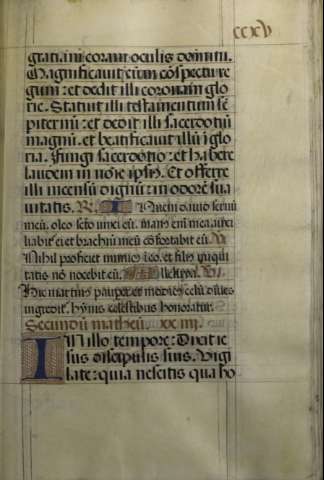 ccxv
gratiā: in coram oculis domini.
Magnificavit eum ī cōspectu re
gum: et dedit illi coronam glo
rie. Statuit illi testamentum sē
piternū: et dedit illi sacerdotiū
magnū. et beatificavit illū ī glo
ria. Fungi sacerdotio: et habere
laudem in noīe ipsiꝰ. Et offerre
illi incensū dignū: in odorē sua
vitatis. R. I Inveni david servū
meū. oleo scō unxi eū. manꝰ enī mea auxi
liabit̄ ei et brachiū meū cōfortabit eū. V.
Nihil proficiet inimicꝰ ī eo. et filiꝰ iniqui
tatis nō nocebit eū. Alleluya. V.
Hic martinꝰ pauper et modicꝰ celū dives
ingredit̄. hymnis celestibus honoratur.
Secundū matheū. xxiiij.
IN illo tempore: Dixit ie
sus discipulis suis. Vigi
late: quia nescitis qua ho